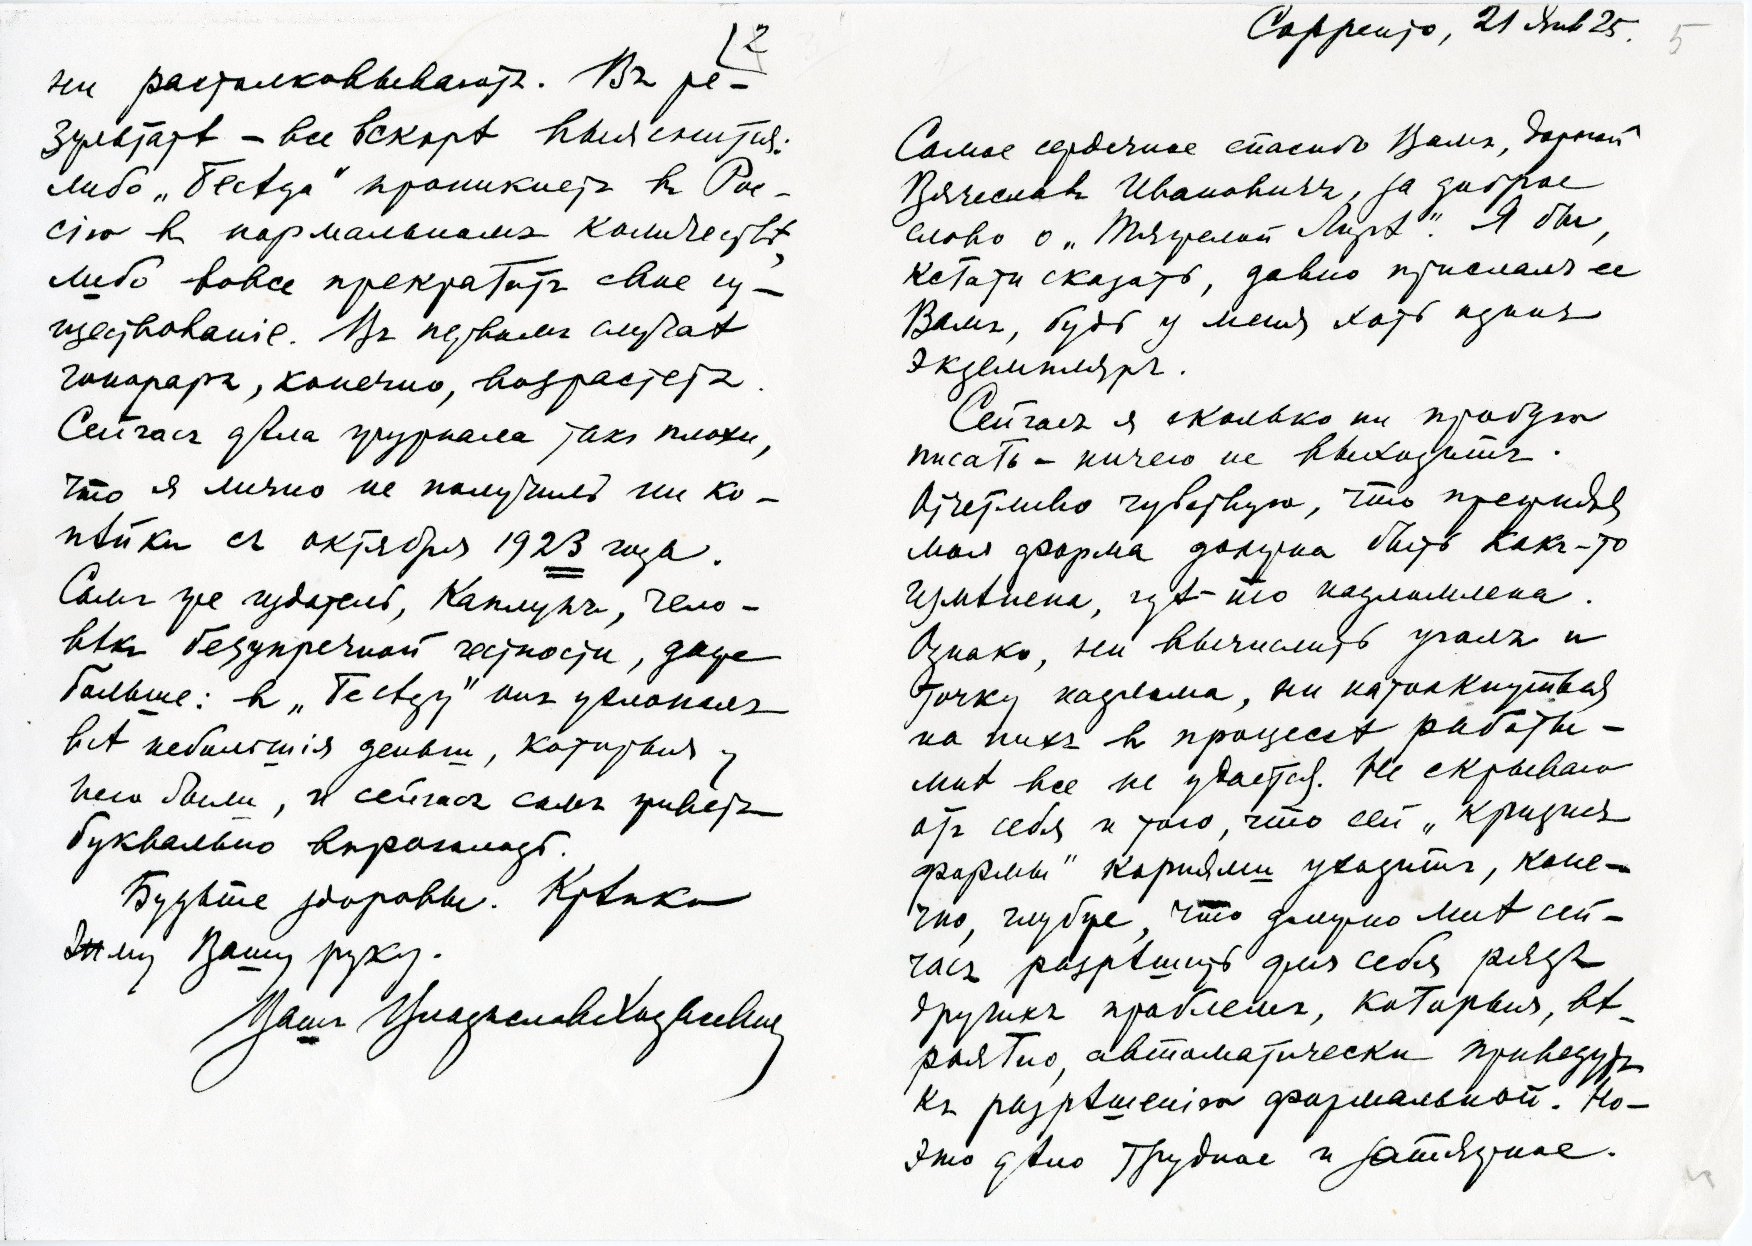 Сорренто, 21 янв 25.
5
Самое сердечное спасибо Вамъ, дорогой
Вячеславъ Ивановичъ, за доброе
слово о „Тяжелой Лирѣ“. Я бы,
кстати сказать, давно прислалъ ее
Вамъ, будь у меня хоть одинъ
экземпляръ.
Сейчасъ я сколько ни пробую
писать – ничего не выходитъ.
Отчетливо чувствую, что прежняя
моя форма должна быть какъ-то
измѣнена, гдѣ-то надломлена.
Однако, ни вычислить уголъ и
точку надлома, ни натолкнуться
на нихъ въ процессѣ работы –
мнѣ все не удается. Не скрываю
отъ себя и того, что сей „кризисъ
формы“ корнями уходитъ, коне-
чно, глубже, что должно мнѣ сей-
часъ разрѣшить для себя рядъ
другихъ проблемъ, которыя, вѣ-
роятно, автоматически приведутъ
къ разрѣшенію формальной. Но –
это дѣло трудное и затяжное.
2
ни растолковываютъ. Въ ре-
зультатѣ – все вскорѣ выяснится:
либо „Бесѣда“ проникнетъ въ Рос-
сію въ нормальномъ количествѣ,
либо вовсе прекратитъ свое су-
ществованіе. Въ первомъ случаѣ
гонораръ, конечно, возрастетъ.
Сейчасъ дѣла журнала такъ плохи,
что я лично не получилъ ни ко-
пѣйки съ октября 1923 года.
Самъ же издатель, Каплунъ, чело-
вѣкъ безупречной честности, даже
больше: въ „Бесѣду“ онъ ухлопалъ
всѣ небольшія деньги, которыя у
него были, и сейчасъ самъ живетъ
буквально впроголодь.
Будьте здоровы. Крѣпко
жму Вашу руку.
Вашъ Владиславъ Ходасевичъ